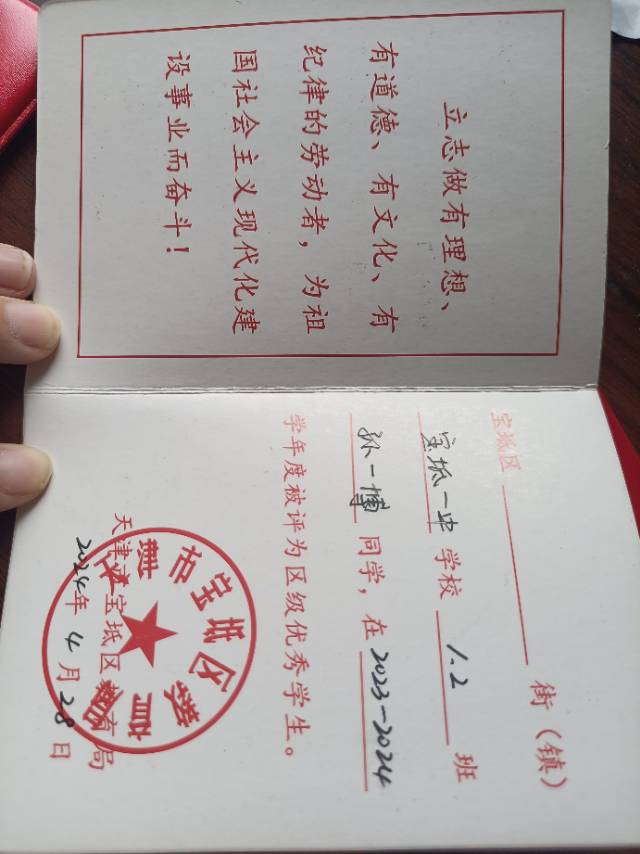 立志做有理想、
有道德、有文化、有
纪律的劳动者，为祖
国社会主义现代化建
设事业而奋斗！
宝坻区 街（镇）
宝坻一中 学校 1.2 班
孙一博 同学，在 2023-2024
学年度被评为区级优秀学生。
天津市宝坻区教育局
2024年4月28日
天津市宝坻区教育局